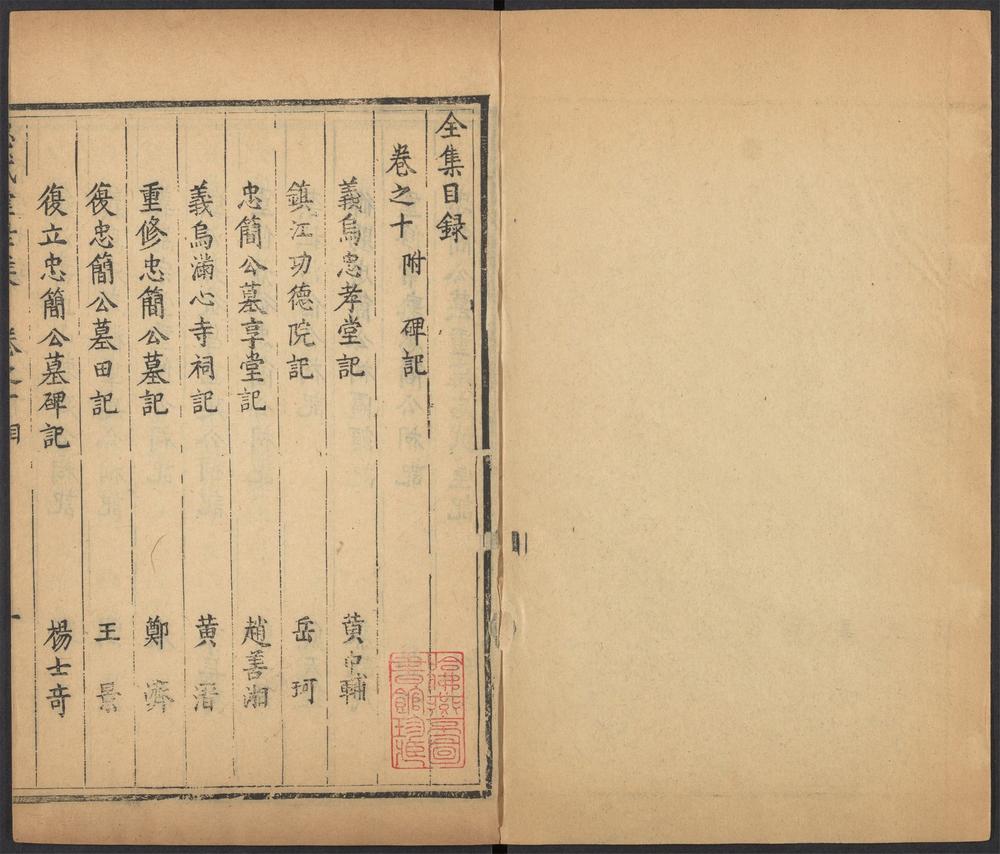 全集目録
卷之十 附 碑記
義烏忠孝堂記 黄中輔
鎮江功德院記 岳珂
忠簡公墓享堂記 趙善湘
義烏滿心寺祠記 黄溍
重修忠簡公墓記 鄭濟
復忠簡公墓田記 王景
復立忠簡公墓碑記 楊士奇
卷之十 目 一
哈佛燕京圖書館珍藏